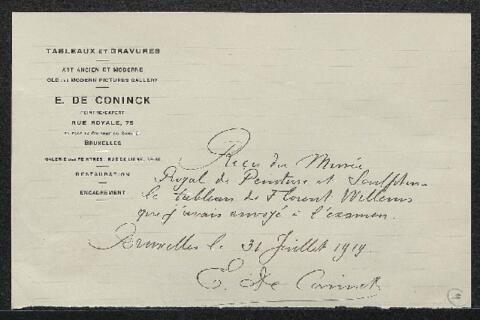 TABLEAUX ET GRAVURES
ART ANCIEN ET MODERNE
OLD AND MODERN PICTURES GALLERY
E. DE CONINCK
PEINTRE-EXPERT
RUE ROYALE, 75
BRUXELLES
GALERIE DES PEINTRES, RUE DE
RESTAURATION
ENCADREMENT
Reçu du Musée
Royal de Peinture et Sculpture
le tableau de Florent Willems
que j'avais envoyé à l'examen.
Bruxelles le 31 Juillet 1919
E. De Coninck